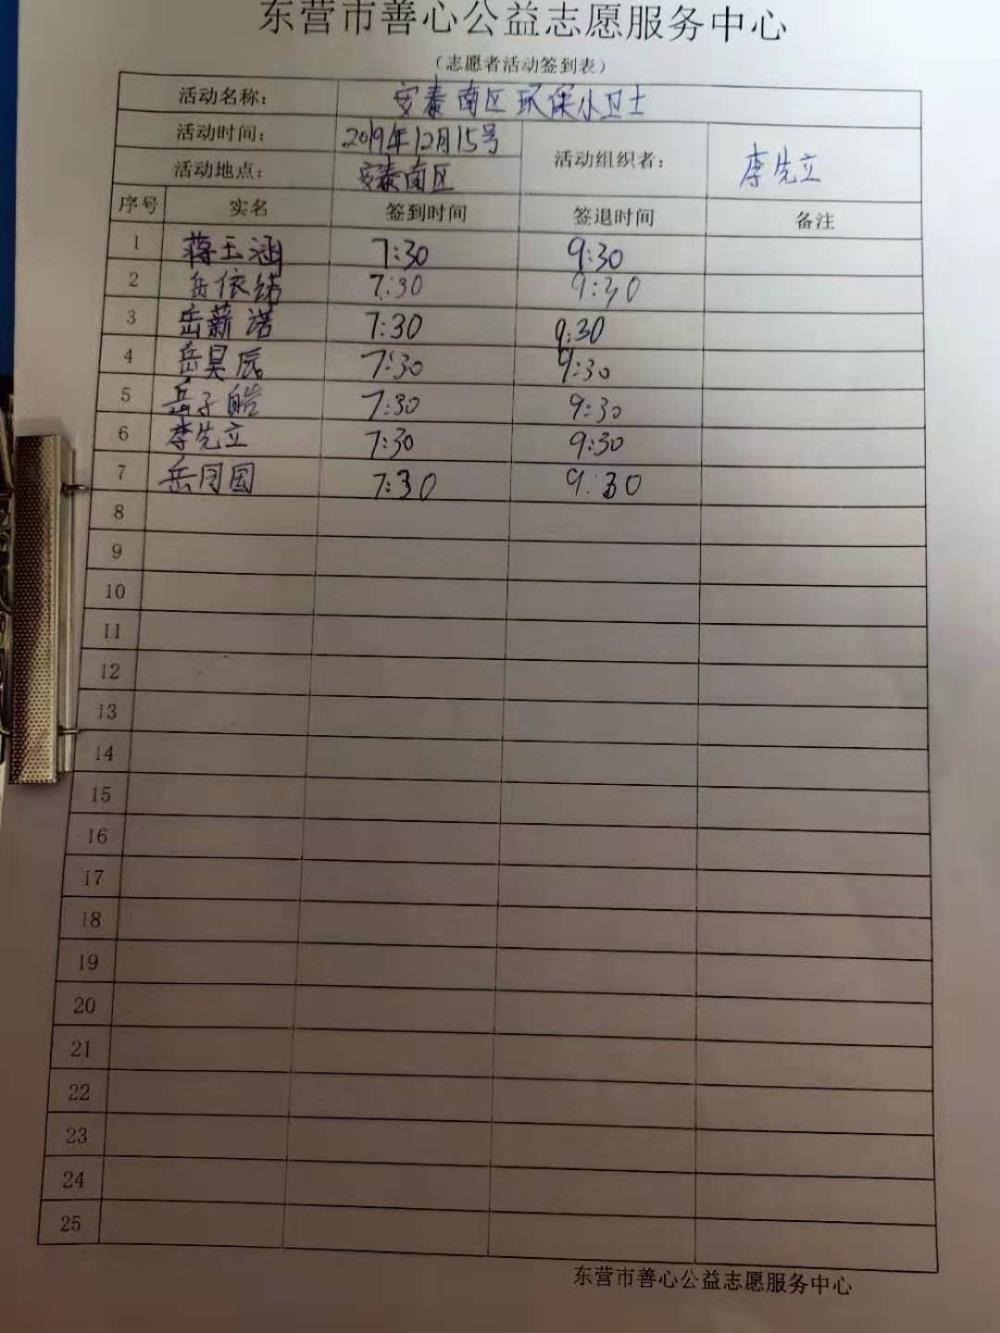 东营市善心公益志愿服务中心
（志愿者活动签到表）
活动名称： 安泰南区环保小卫士
活动时间： 2019年12月15号 活动组织者： 李先立
活动地点： 安泰南区
序号 实名 签到时间 签退时间 备注
1 蒋玉涵 7:30 9:30
2 岳依诺 7:30 9:30
3 岳薪诺 7:30 9:30
4 岳昊辰 7:30 9:30
5 岳子皓 7:30 9:30
6 李先立 7:30 9:30
7 岳同国 7:30 9:30
8
9
10
11
12
13
14
15
16
17
18
19
20
21
22
23
24
25
东营市善心公益志愿服务中心